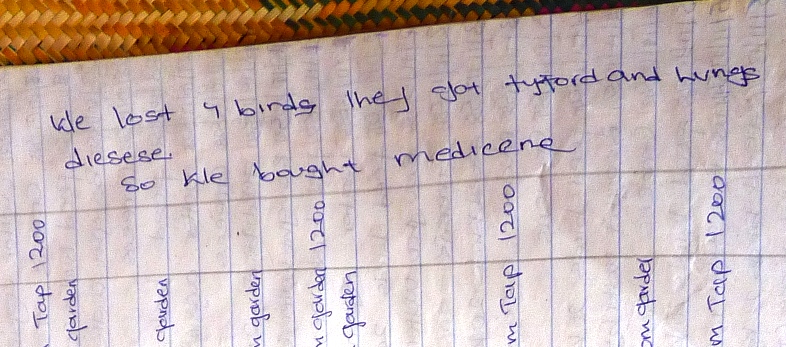 We lost 4 birds they got tyford and hungs
diesese.
So We bought medicene
Tap 1200
garden
garden
garden
garden 1200
garden
m Tap 1200
om garden
m Tap 1200